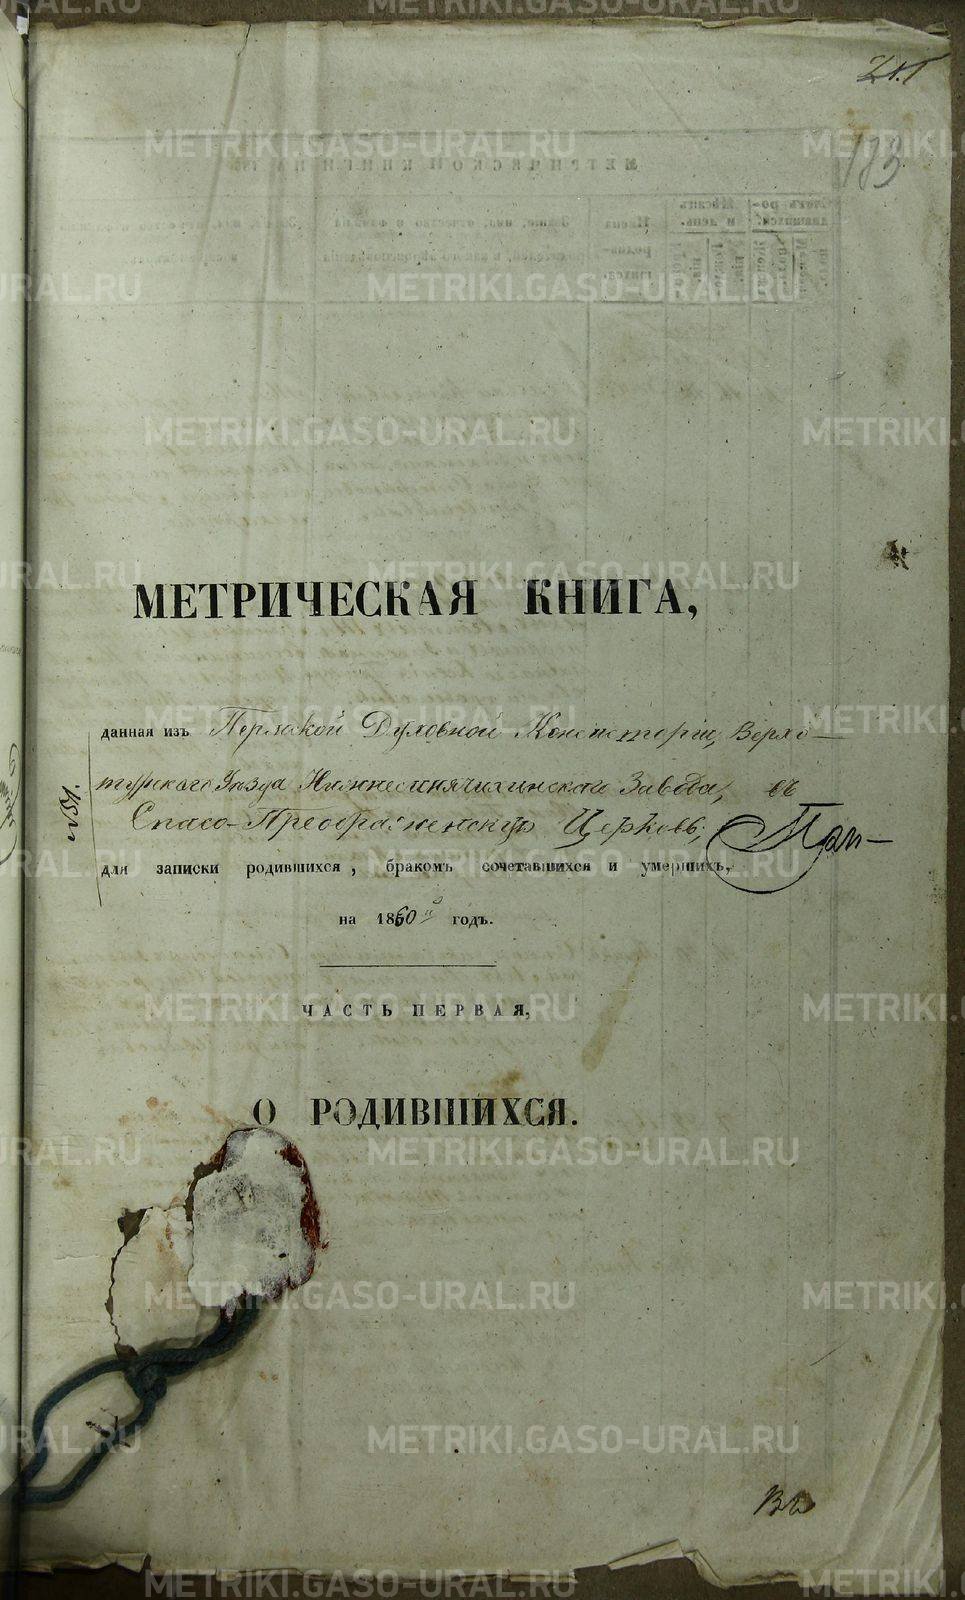 183
МЕТРИЧЕСКАЯ КНИГА,
данная изъ Пермской Духовной Консисторіи, Верхо-
турскаго Уѣзда Нижнесинячихинскаго Завода, въ
Спасо-Преображенскую Церковь,
для записки родившихся, бракомъ сочетавшихся и умершихъ,
на 1860й годъ.
ЧАСТЬ ПЕРВАЯ,
О РОДИВШИХСЯ.
METRIKI.GASO-URAL.RU